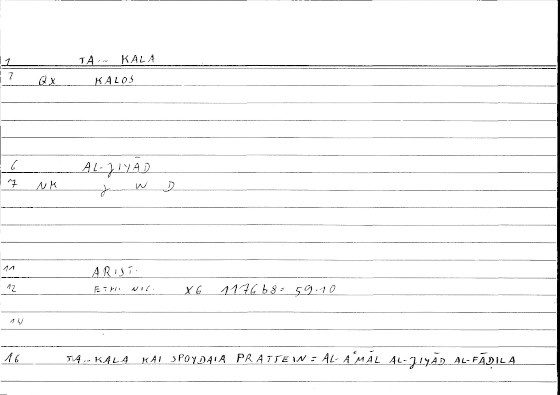 1 TA-- KALA
2 QX KALOS
6 AL-ǧIYĀD
7 NK ǧ W D
11 ARIST.
12 ETH. NIC. X6 1176b8= 59.10
14
16 TA--KALA KAI SPOYDAIA PRATTEIN = AL-AʿMĀL AL-ǧIYĀD AL-FĀḌILA